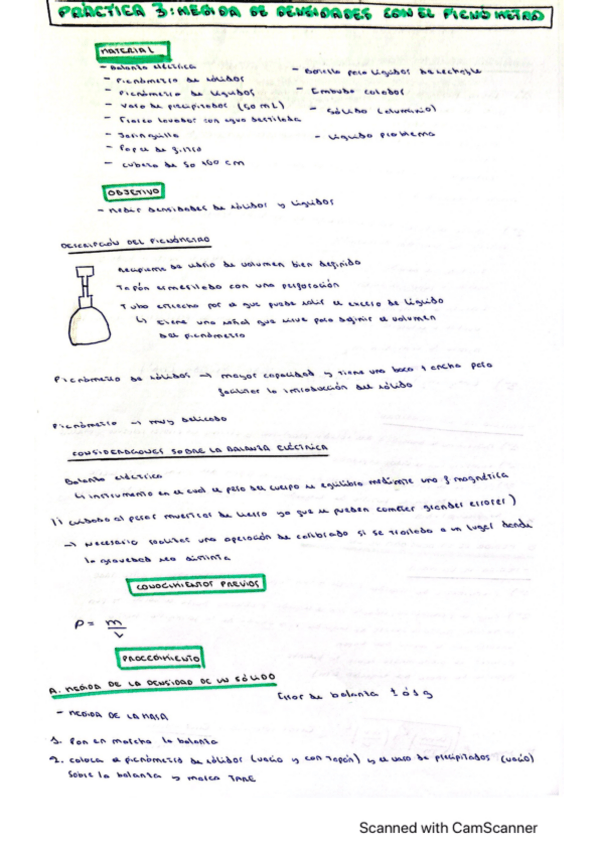 PRÁCTICA 3: MEDIDA DE DENSIDADES CON EL PICNÓMETRO
MATERIAL
- Balanza eléctrica
- Picnómetro de sólidos
- Picnómetro de líquidos
- Vaso de precipitados (50 mL)
- Frasco lavador con agua destilada
- Jeringuilla
- Papel de filtro
- Cubeta de 50 x60 cm
- líquidos de
- Embudo
- Sólido (aluminio)
- Líquido problema
OBJETIVO
- Medir densidades de sólidos y líquidos
DESCRIPCIÓN DEL PICNÓMETRO
Recipiente de vidrio de volumen bien definido
Tapón esmerilado con una perforación
Tubo estrecho por el que puede salir el exceso de líquido
↳ tiene una señal que sirve para definir el volumen
del picnómetro
Picnómetro de sólidos → mayor capacidad y tiene una boca + ancha para
facilitar la introducción del sólido
Picnómetro → muy delicado
CONSIDERACIONES SOBRE LA BALANZA ELÉCTRICA
Balanza eléctrica
↳ instrumento en el cual el peso del cuerpo se equilibra mediante una f magnética
cuidado al pesar muestras de hierro ya que se pueden cometer grandes errores)
→ Necesario realizar una operación de calibrado si se traslada a un lugar donde
la gravedad sea distinta
CONOCIMIENTOS PREVIOS
ρ = m/V
PROCEDIMIENTO
A. MEDIDA DE LA DENSIDAD DE UN SÓLIDO
Error de balanza
- MEDIDA DE LA MASA
1. Pon en marcha la balanza
2. Coloca el picnómetro de sólidos (vacío y con tapón) y el vaso de precipitados (vacío)
sobre la balanza y marca TARE
Scanned with CamScanner